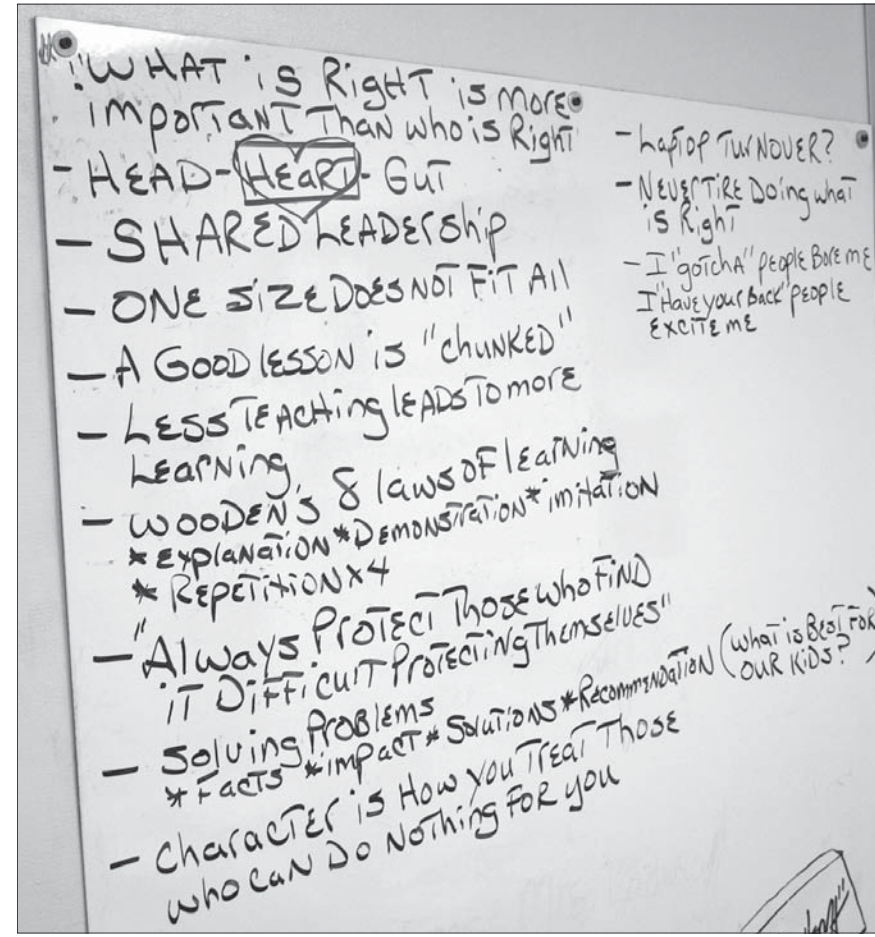 "WHAT is RigHT is more
imporTanT Than who is Right
- HEAD - HEART - GuT
- SHARED LEADERship
- ONE SIZE DoEs NoT FiT All
- A GOOD lESSON is "chuNKED"
- LESS TEAcHing lEADs To morE
LEARNing
- WOODEN'S 8 laws oF lEaRNing
* ExplaNaTiON * DEmoNSTRaTiON * imiTaTiON
* REPETiTiON x 4
- "Always ProTEcT Those who FiND
iT DiFFicuLT ProTEcTiNg ThemsElvEs"
- Solving ProBlEms
* FacTs * impacT * SoluTiONs * REcommENDaTiON (whaT is BEsT FoR
OUR KiDs?)
- ChaRacTER is How you TREaT Those
who caN Do NoThiNg FoR you
- LapTop TuRNOVER?
- NEVER TiRE Doing whaT
is RighT
- I "goTchA" pEoplE BoRE mE
I "HavE youR Back" pEoplE
EXCiTE mE